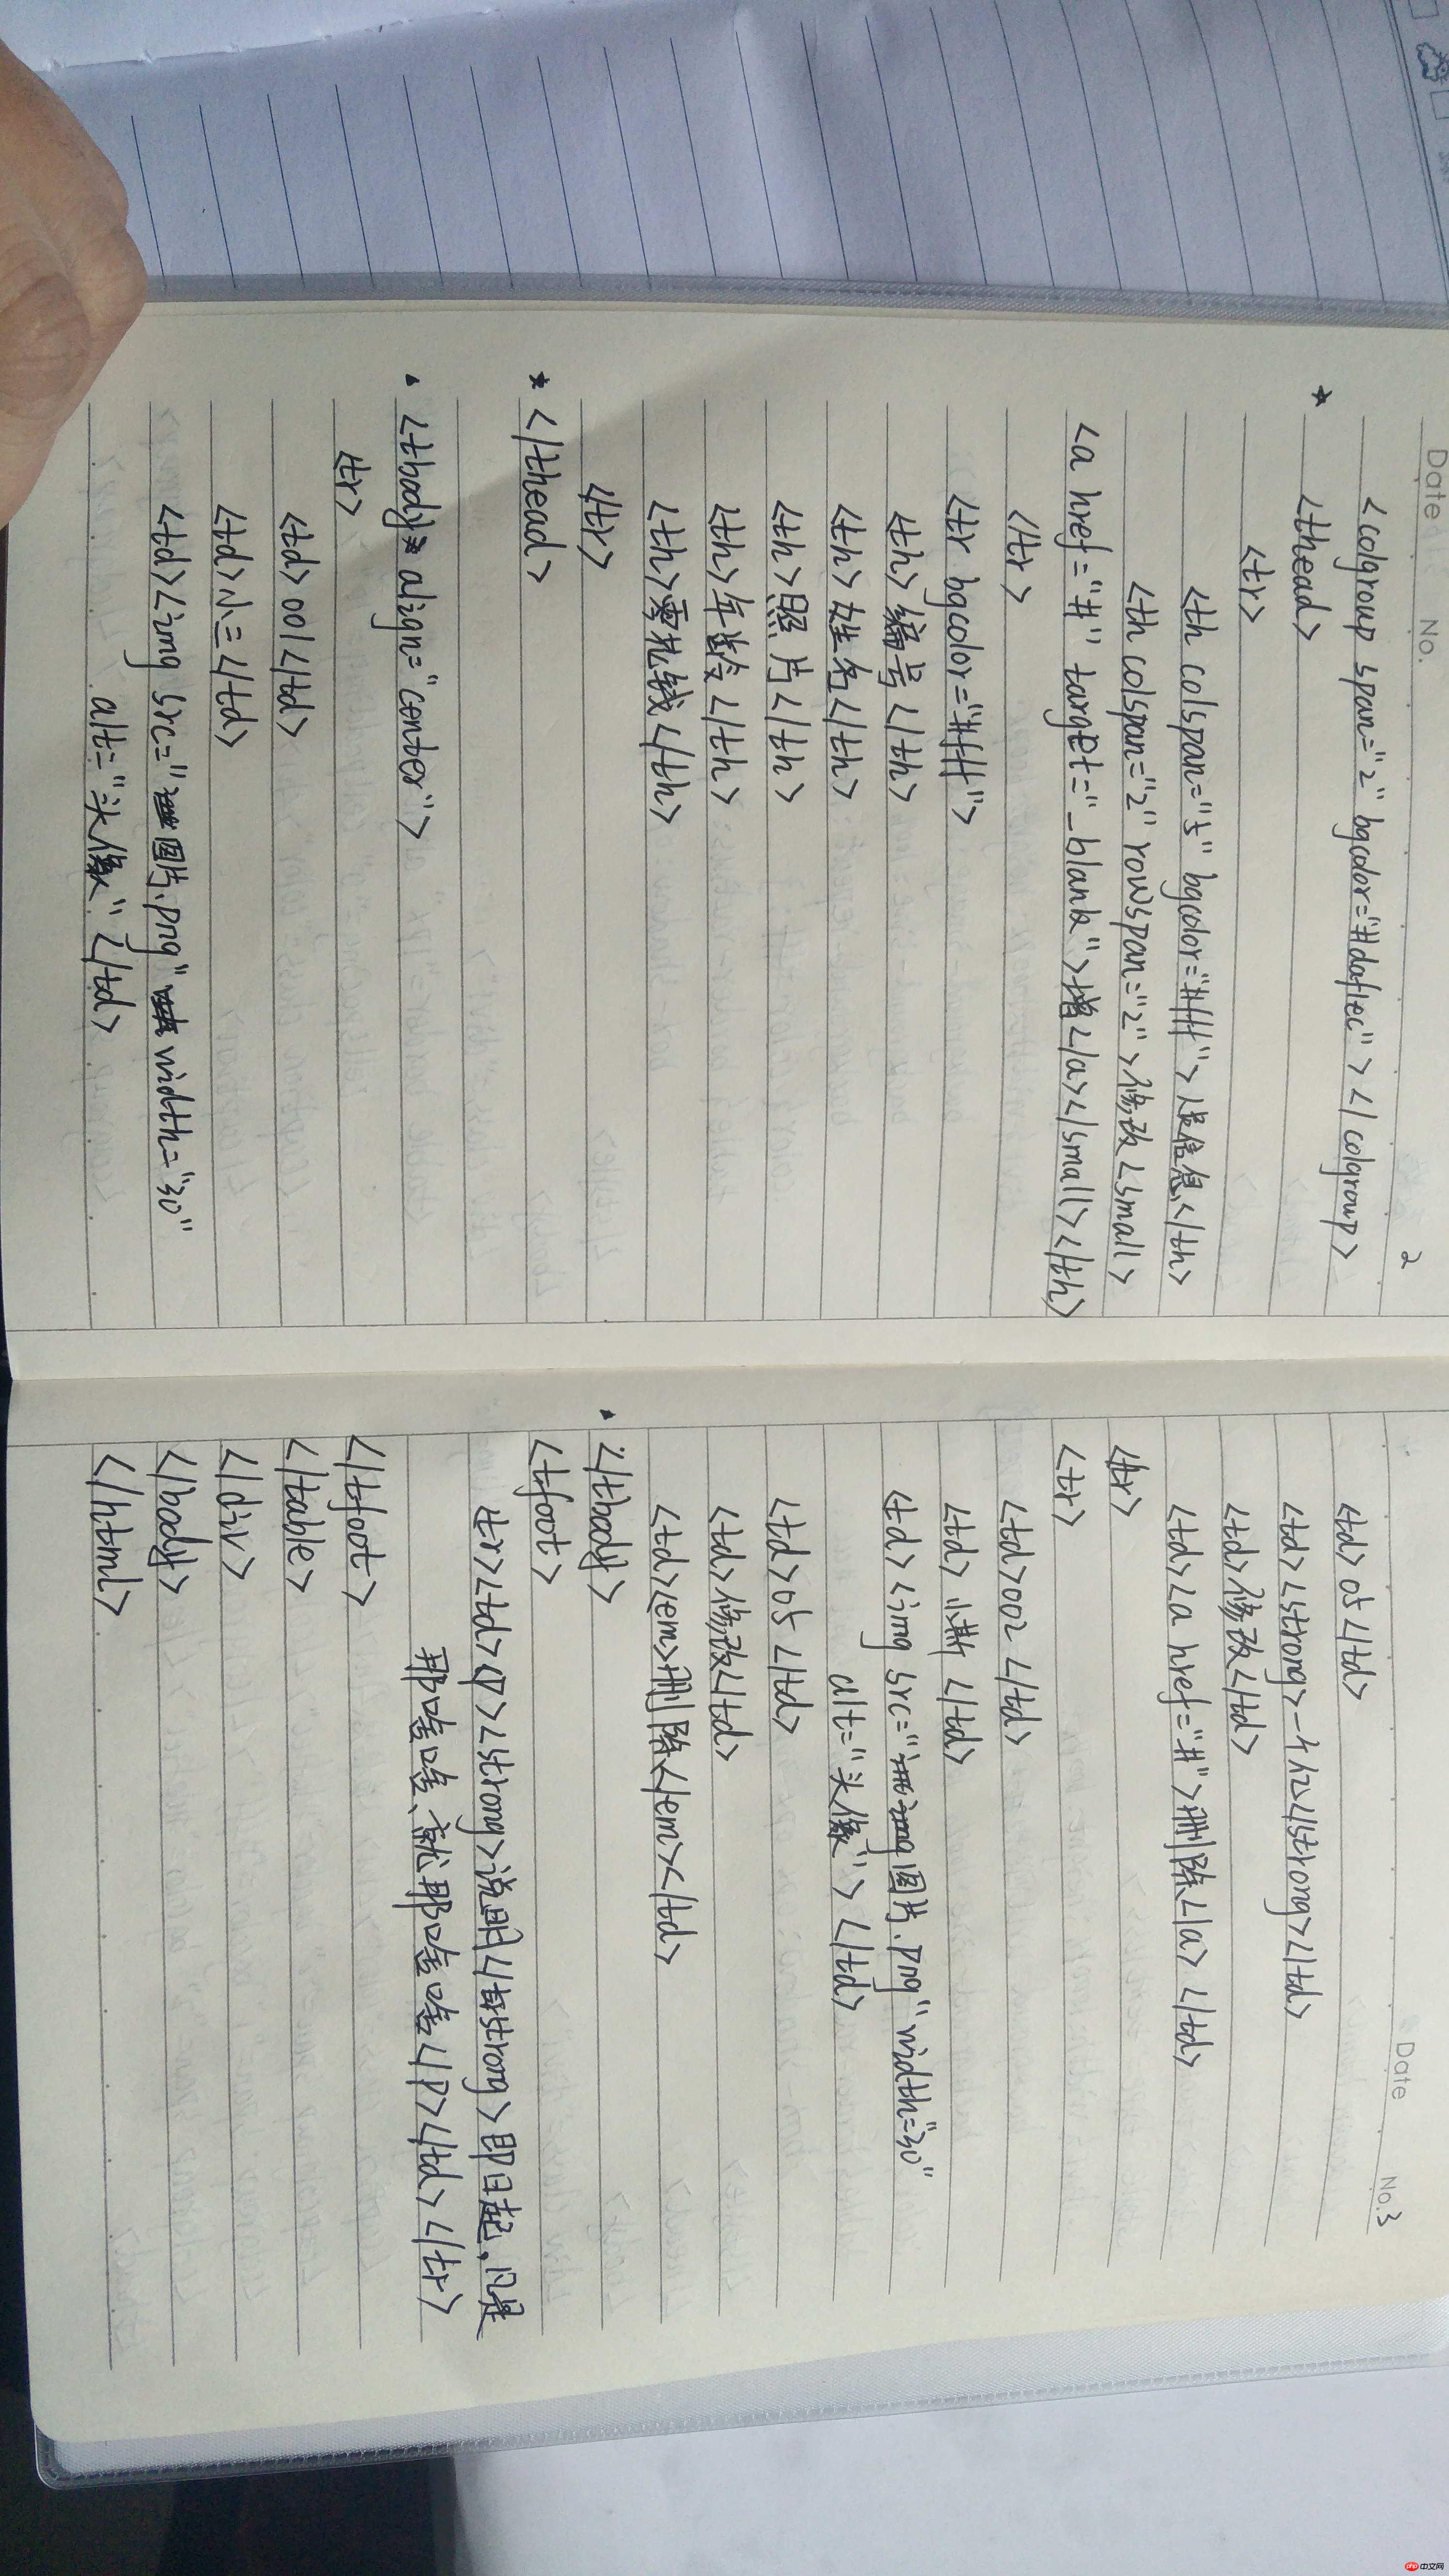 Date No. 2
<colgroup span="2" bgcolor="#daf1ec"></colgroup>
<thead>
<tr>
<th colspan="5" bgcolor="#fff">信息</th>
<th colspan="2" rowspan="2">修改<small>
<a href="#" target="_blank">增</a></small></th>
</tr>
<tr bgcolor="#fff">
<th>编号</th>
<th>姓名</th>
<th>照片</th>
<th>年龄</th>
<th>零花钱</th>
</tr>
</thead>
<tbody align="center">
<tr>
<td>001</td>
<td>小三</td>
<td><img src="图片.png" width="30"
alt="头像"</td>
Date No.3
<td>05</td>
<td><strong>一个亿</strong></td>
<td>修改</td>
<td><a href="#">删除</a></td>
<tr>
<tr>
<td>002</td>
<td></td>
<td><img src="图片.png" width="30"
alt="头像"></td>
<td>05</td>
<td>修改</td>
<td><em>删除</em></td>
</tbody>
<tfoot>
<tr><td><p><strong>说明</strong>即日起,凡是
那啥啥、就那啥啥</p></td></tr>
</tfoot>
</table>
</div>
</body>
</html>
php 中文网